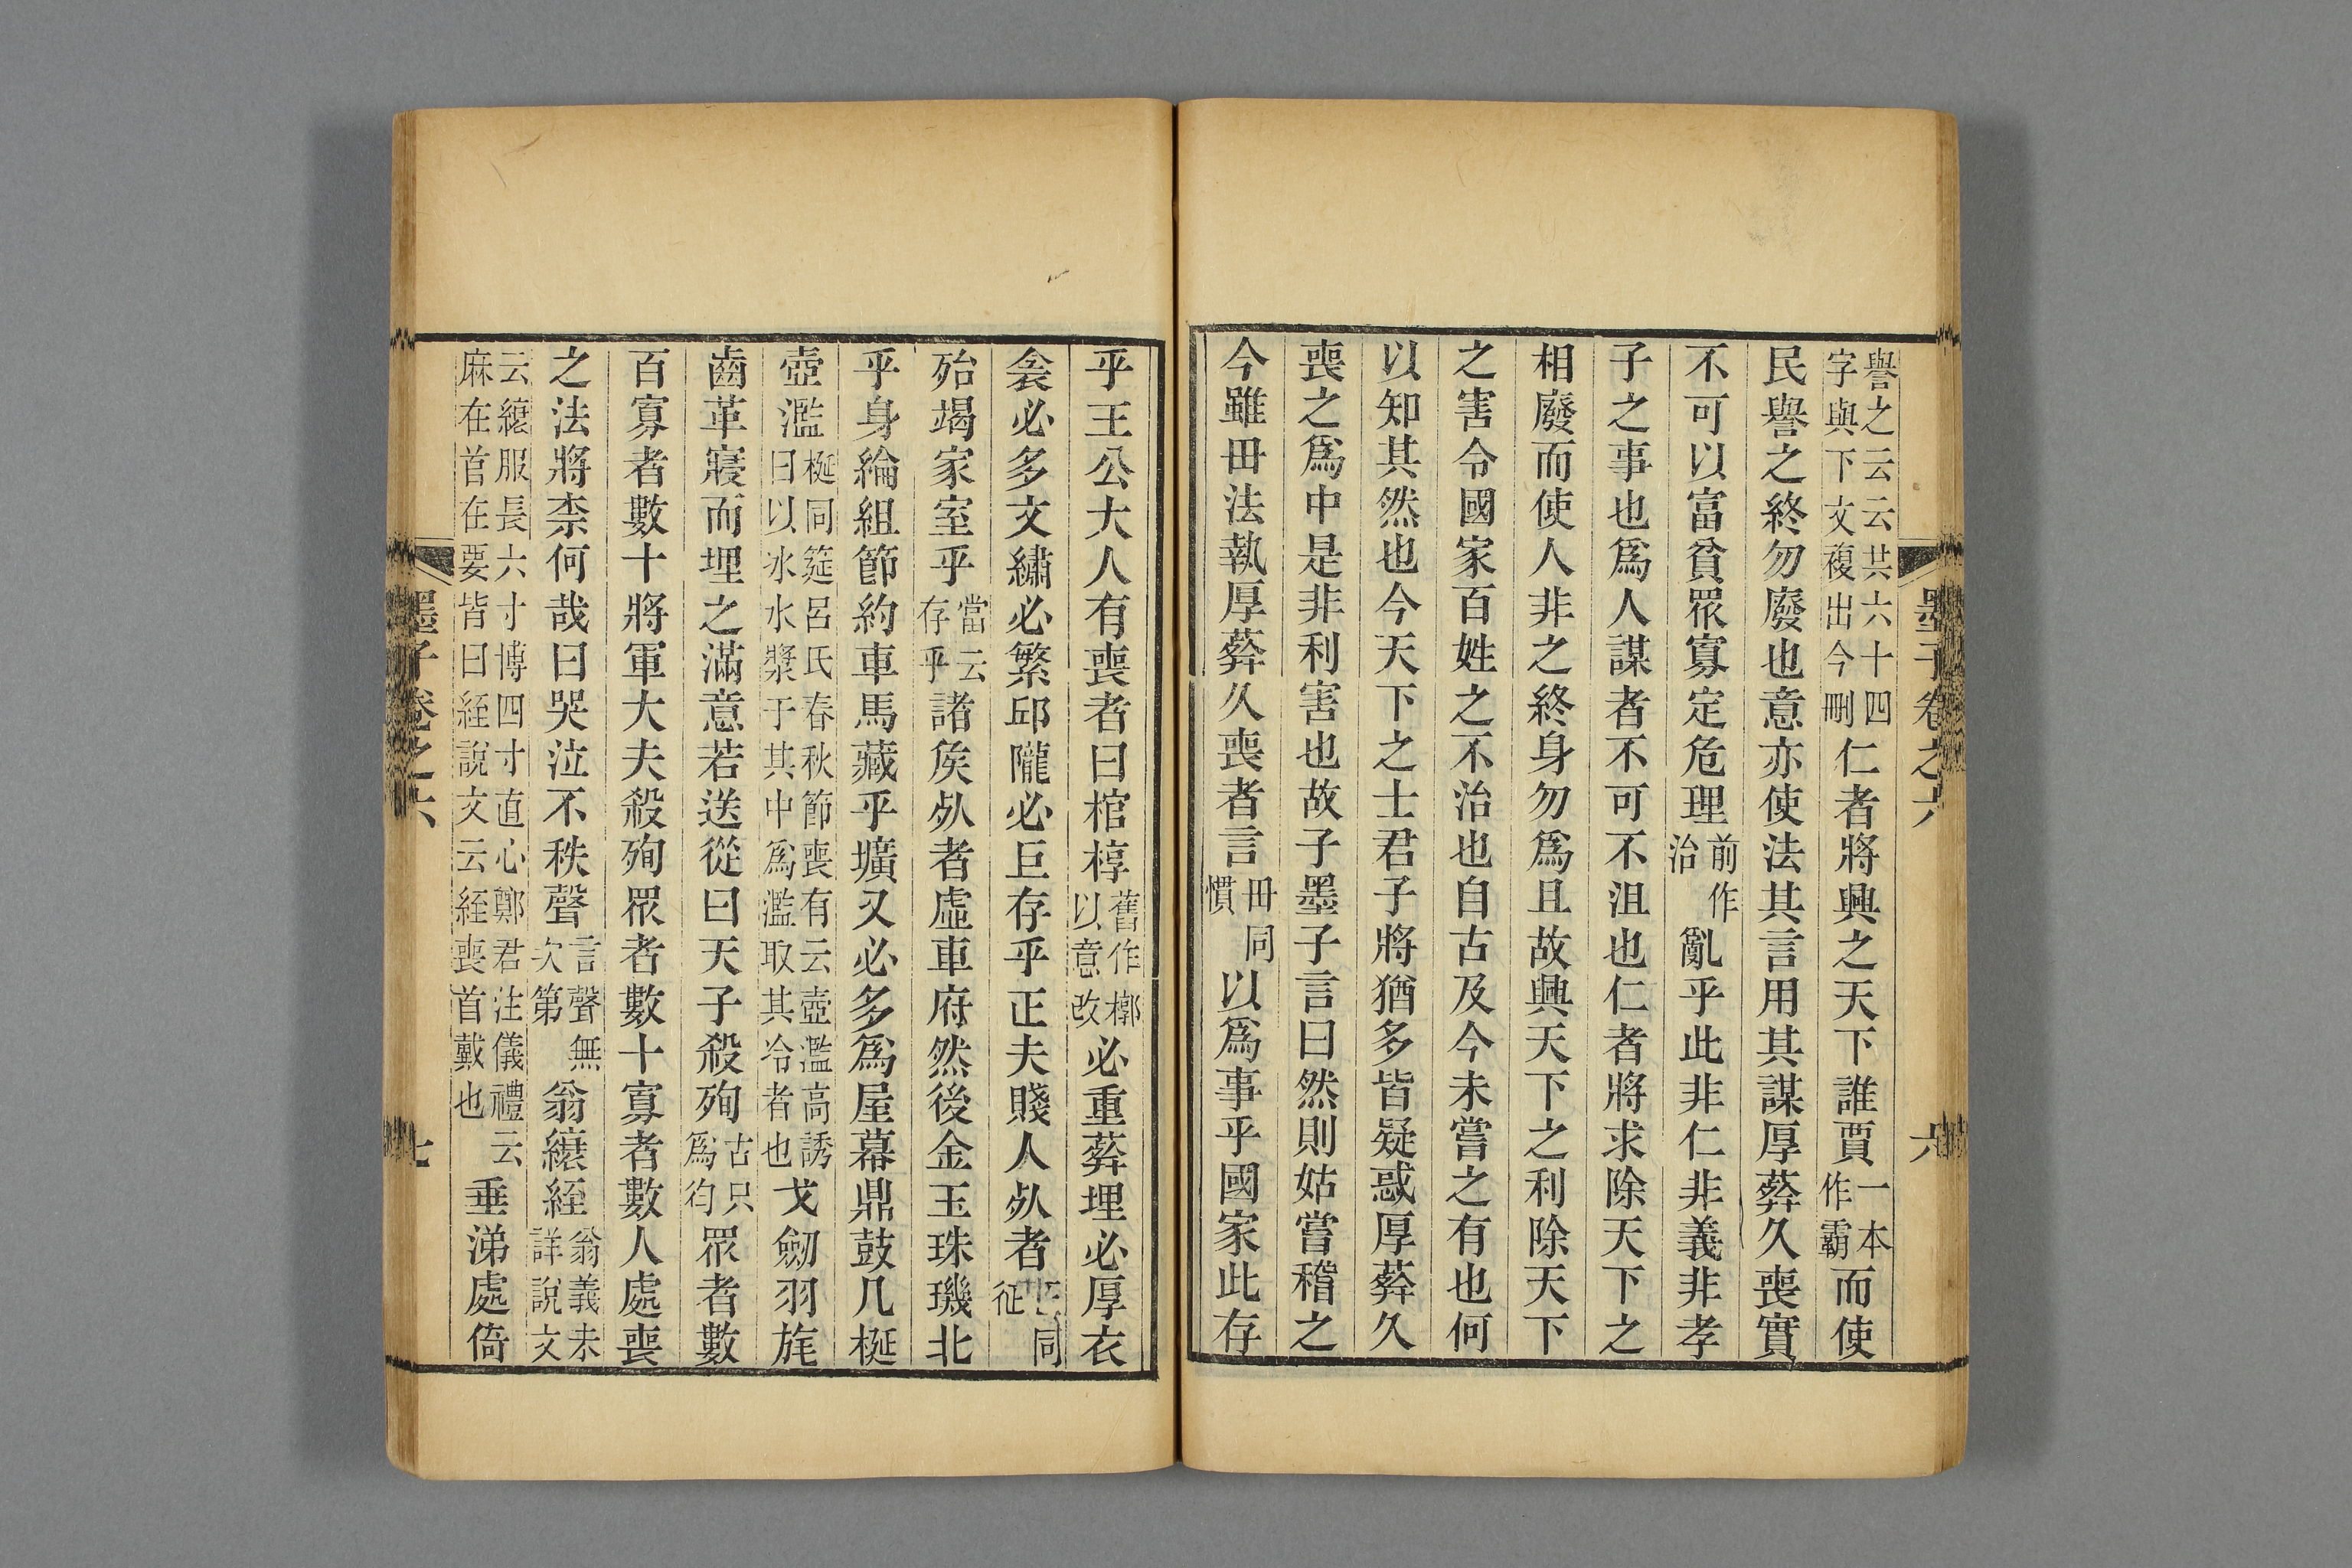 墨子卷之六 六
譽之云云共六十四字與下文複出今刪仁者將興之天下誰賈一本作霸而使
民譽之終勿廢也意亦使法其言用其謀厚葬久喪實
不可以富貧眾寡定危理前作治亂乎此非仁非義非孝
子之事也爲人謀者不可不沮也仁者將求除天下之
相廢而使人非之終身勿爲且故興天下之利除天下
之害令國家百姓之不治也自古及今未嘗之有也何
以知其然也今天下之士君子將猶多皆疑惑厚葬久
喪之爲中是非利害也故子墨子言曰然則姑嘗稽之
今雖毌法執厚葬久喪者言毌同慣以爲事乎國家此存
乎王公大人有喪者曰棺椁舊作槨以意改必重葬埋必厚衣
衾必多文繡必繁邱隴必巨存乎正夫賤人死者正同征
殆竭家室乎當云存乎諸矦死者虛車府然後金玉珠璣北
乎身綸組節約車馬藏乎壙又必多爲屋幕鼎鼓几梴
壺濫梴同筵呂氏春秋節喪有云壺濫高誘曰以冰水漿于其中爲濫取其冷者也戈劒羽旄
齒革寢而埋之滿意若送從曰天子殺殉古只爲徇眾者數
百寡者數十將軍大夫殺殉眾者數十寡者數人處喪
之法將柰何哉曰哭泣不秩聲言聲無次第翁縗絰翁義未詳說文
云縗服長六寸博四寸直心鄭君注儀禮云麻在首在要皆曰絰說文云絰喪首戴也垂涕處倚
墨子卷之六 七